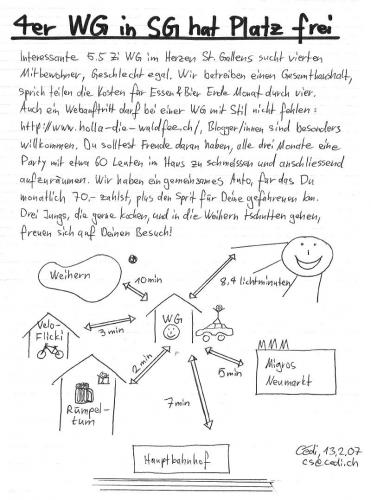 4er WG in SG hat Platz frei
Interessante 5.5 Zi WG im Herzen St. Gallens sucht vierten
Mitbewohner, Geschlecht egal. Wir betreiben einen Gesamthaushalt,
sprich teilen die Kosten für Essen & Bier Ende Monat durch vier.
Auch ein Webauftritt darf bei einer WG mit Stil nicht fehlen:
http://www.holla-die-waldfee.ch/, Blogger/innen sind besonders
willkommen. Du solltest Freude daran haben, alle drei Monate eine
Party mit etwa 60 Leuten im Haus zu schmeissen und anschliessend
aufzuräumen. Wir haben ein gemeinsames Auto, für das Du
monatlich 70.- zahlst, plus den Sprit für Deine gefahrenen km.
Drei Jungs, die gerne kochen, und in die Weihern tschutten gehen,
freuen sich auf Deinen Besuch!
Weihern
10min
8,4 lichtminuten
Velo-
Flicki
3 min
WG
2 min
5min
Migros
Neumarkt
Rümpel-
tum
7min
Hauptbahnhof
Cédi, 13.2.07
cs@cedi.ch